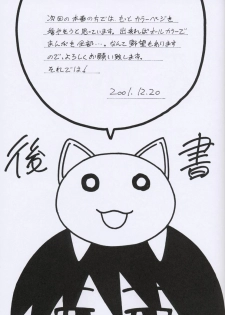 次回の本番の方では もっと カラーページを
増やそうと思っています。出来れば オールカラーで
まんがを全部…。なんて 野望もあります
ので、よろしくお願い致します。
それでは！
2001. 12. 20
後書